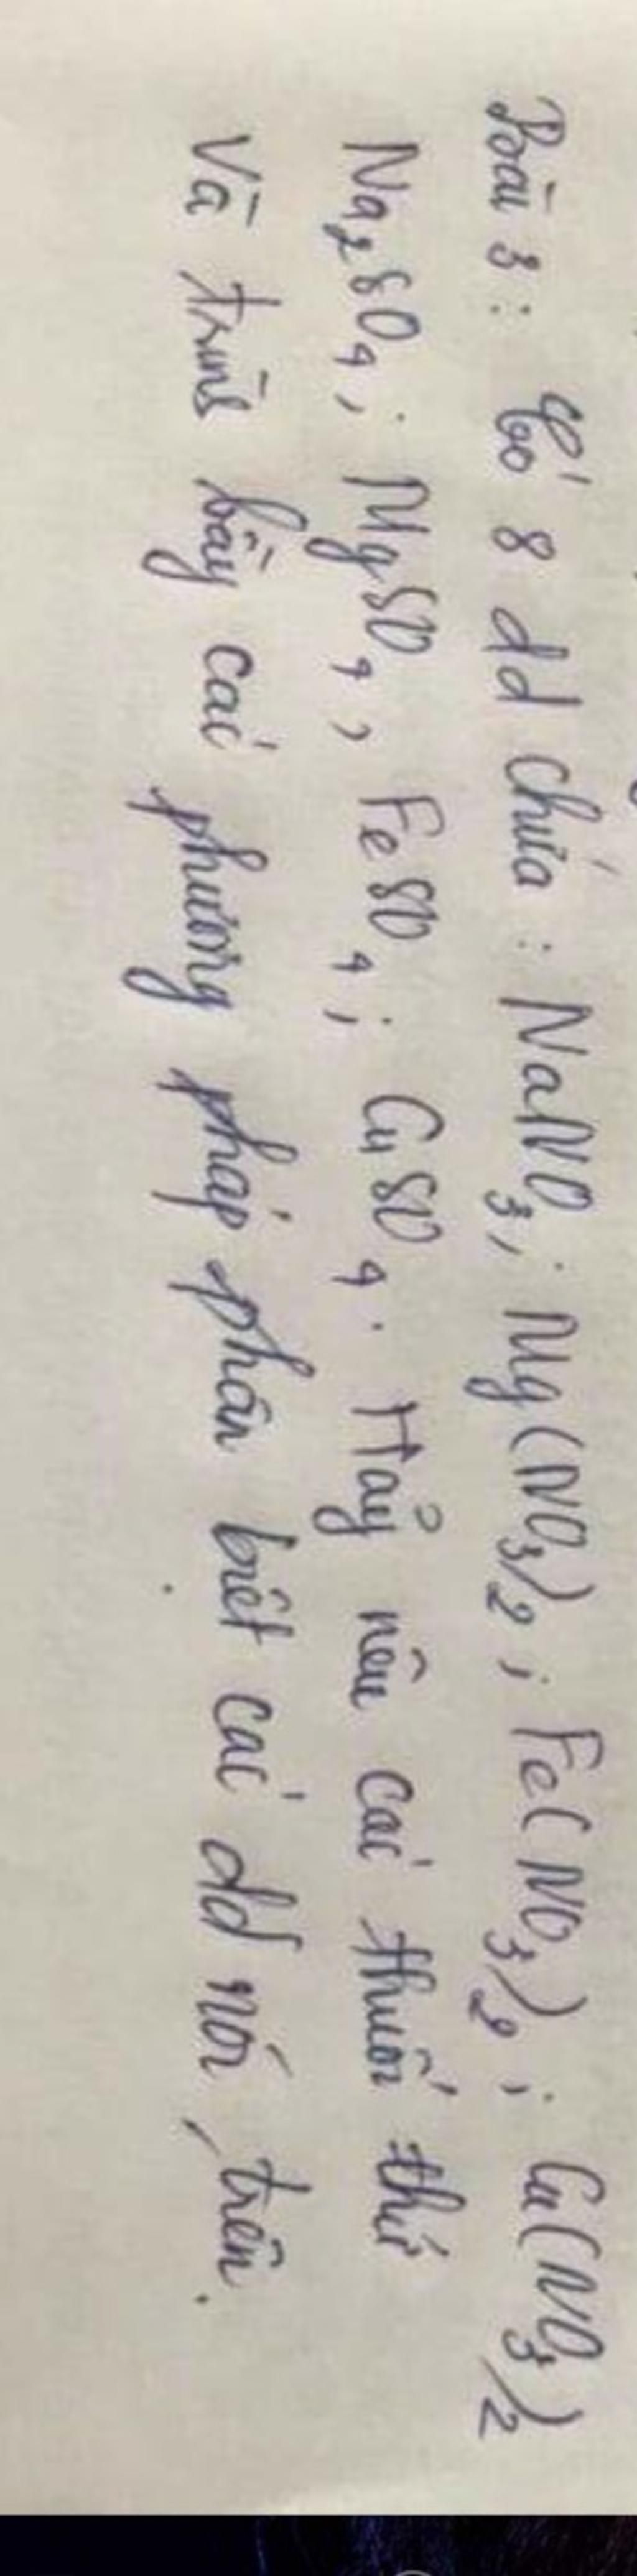 Bài 3: Có 8 dd chứa: NaNO3; Mg(NO3)2; Fe(NO3)2; Cu(NO3)2
Na2SO4; MgSO4, FeSO4; CuSO4. Hãy nêu các thuốc thử
Và trình bầy các phương pháp phân biệt các dd nói trên.